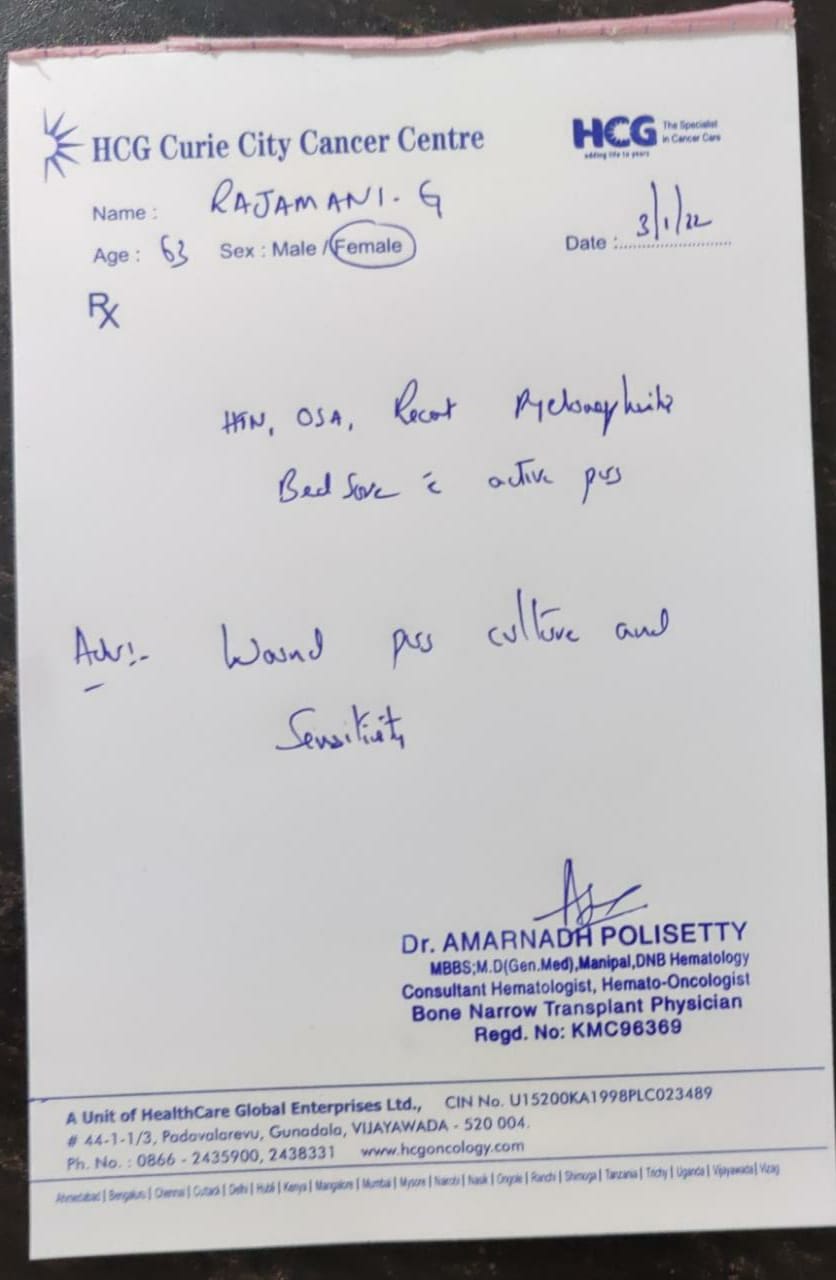 HCG Curie City Cancer Centre
HCG The Specialist in Cancer Care
adding life to years
Name : RAJAMANI. G
Age : 63 Sex : Male / Female
Date : 3/1/22
Rx
HTN, OSA, Recent Pyelonephritis
Bed Sore c̄ active pus
Adv:- Wound pus culture and
Sensitivity
Dr. AMARNADH POLISETTY
MBBS;M.D(Gen.Med),Manipal,DNB Hematology
Consultant Hematologist, Hemato-Oncologist
Bone Narrow Transplant Physician
Regd. No: KMC96369
A Unit of HealthCare Global Enterprises Ltd., CIN No. U15200KA1998PLC023489
# 44-1-1/3, Padavalarevu, Gunadala, VIJAYAWADA - 520 004.
Ph. No. : 0866 - 2435900, 2438331 www.hcgoncology.com
Ahmedabad | Bengaluru | Chennai | Cuttack | Delhi | Hubli | Kenya | Mangalore | Mumbai | Mysore | Nairobi | Nasik | Ongole | Ranchi | Shimoga | Tanzania | Trichy | Uganda | Vijayawada | Vizag